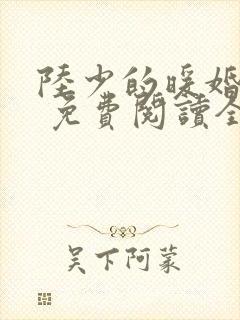 陸少的暖婚
免費閱讀全
吴下阿蒙